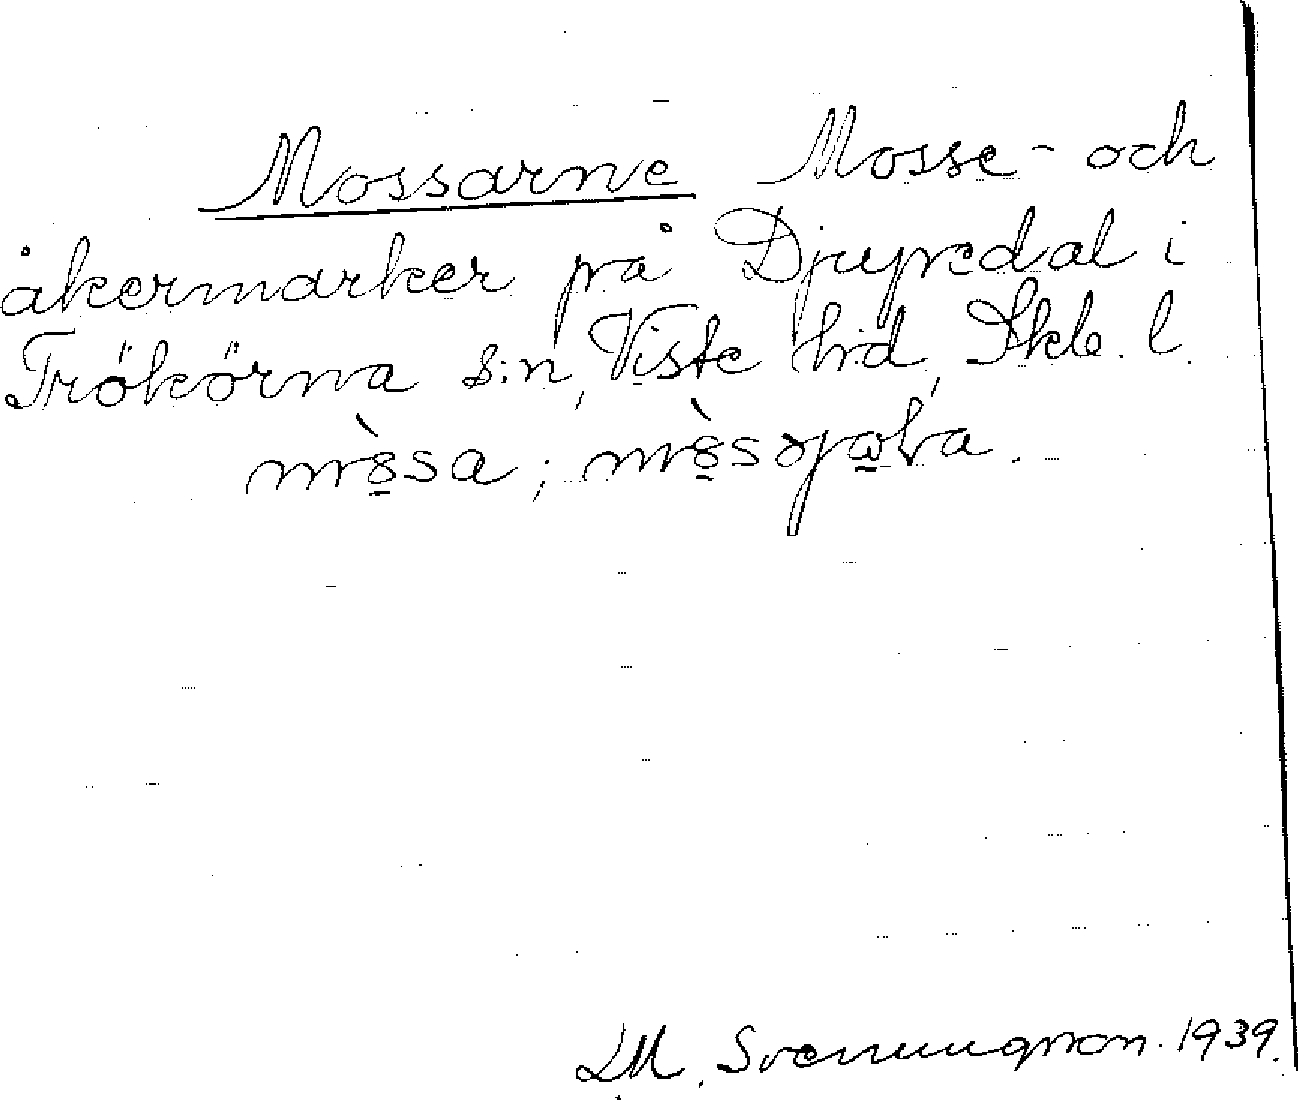 Mossarne Mosse- och
åkermarker på Djupedal i
Trökörna s:n, Viste hd, Skb. l.
L M. Svenungsson. 1939.